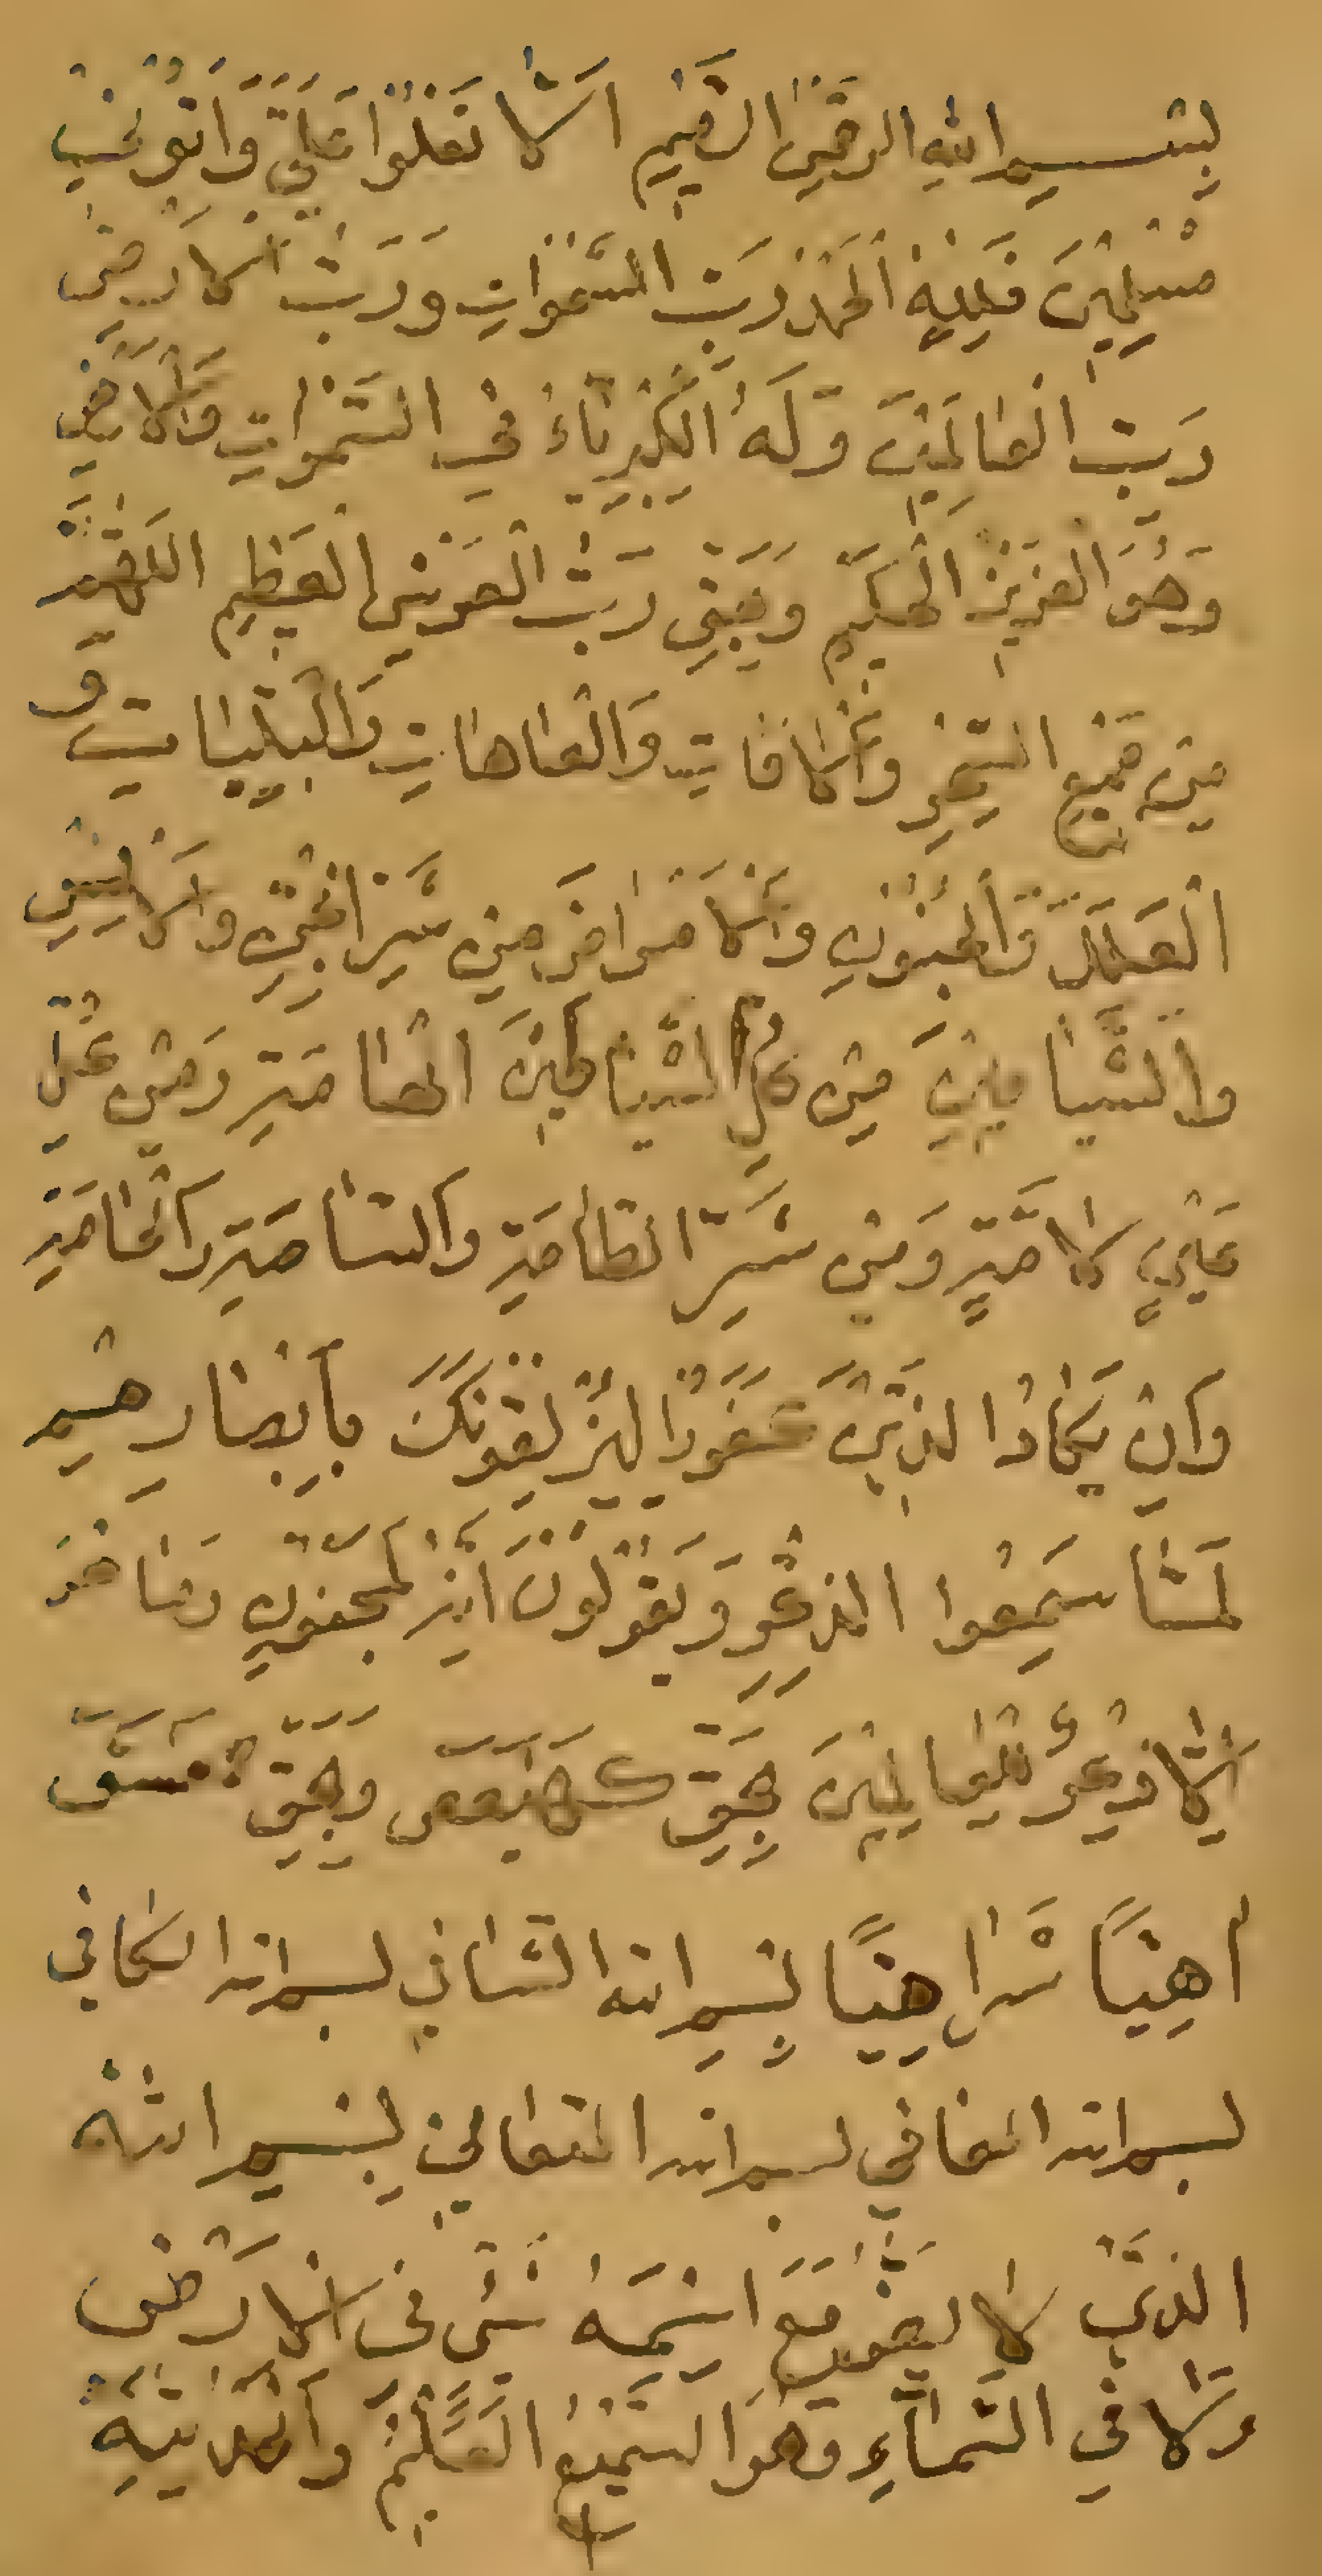 بِسْمِ اللهِ الرَّحْمٰنِ الرَّحِيْمِ اَلَّا تَعْلُوْا عَلَيَّ وَأْتُوْنِيْ
مُسْلِمِيْنَ فَلِلّٰهِ الْحَمْدُ رَبِّ السَّمٰوَاتِ وَرَبِّ الْاَرْضِ
رَبِّ الْعَالَمِيْنَ وَلَهُ الْكِبْرِيَاءُ فِي السَّمٰوَاتِ وَالْاَرْضِ
وَهُوَ الْعَزِيْزُ الْحَكِيْمِ وَبِحَقِّ رَبِّ الْعَرْشِ الْعَظِيْمِ
مِنْ جَمِيْعِ السِّحْرِ وَالْاٰفَاتِ وَالْعَاهَاتِ وَالْبَلِيَّاتِ وَ
الْعِلَلِ وَالْجُنُوْنِ وَالْاَمْرَاضِ مِنْ شَرِّ الْجِنِّ وَالْاِنْسِ
وَالشَّيَاطِيْنِ مِنْ كُلِّ الشَّيَاطِيْنَ الْعَامَّةِ وَمِنْ كُلِّ
عَيْنٍ لَامَّةٍ وَمِنْ شَرِّ الطَّامَّةِ وَالسَّامَّةِ وَالْحَامَّةِ
وَاِنْ يَكَادُ الَّذِيْنَ كَفَرُوْا لَيُزْلِقُوْنَكَ بِاَبْصَارِهِمْ
لَمَّا سَمِعُوا الذِّكْرَ وَيَقُوْلُوْنَ اِنَّهُ لَمَجْنُوْنٌ وَمَا هُوَ
اِلَّا ذِكْرٌ لِلْعَالَمِيْنَ بِحَقِّ كهيعص وَبِحَقِّ حمعسق
اَهِيًّا شَرَاهِيًّا بِسْمِ اللهِ الشَّافِي بسم الله الكَافِي
بسم الله المعَافِي بسم الله المتَعَالِي بِسْمِ اللهِ
الَّذِيْ لَا يَضُرُّ مَعَ اسْمِهِ شَيْئٌ فِي الْاَرْضِ
وَلَا فِي السَّمَاءِ وَهُوَ السَّمِيْعُ الْعَلِيْمُ وَالْحَمْدُ لِلّٰهِ